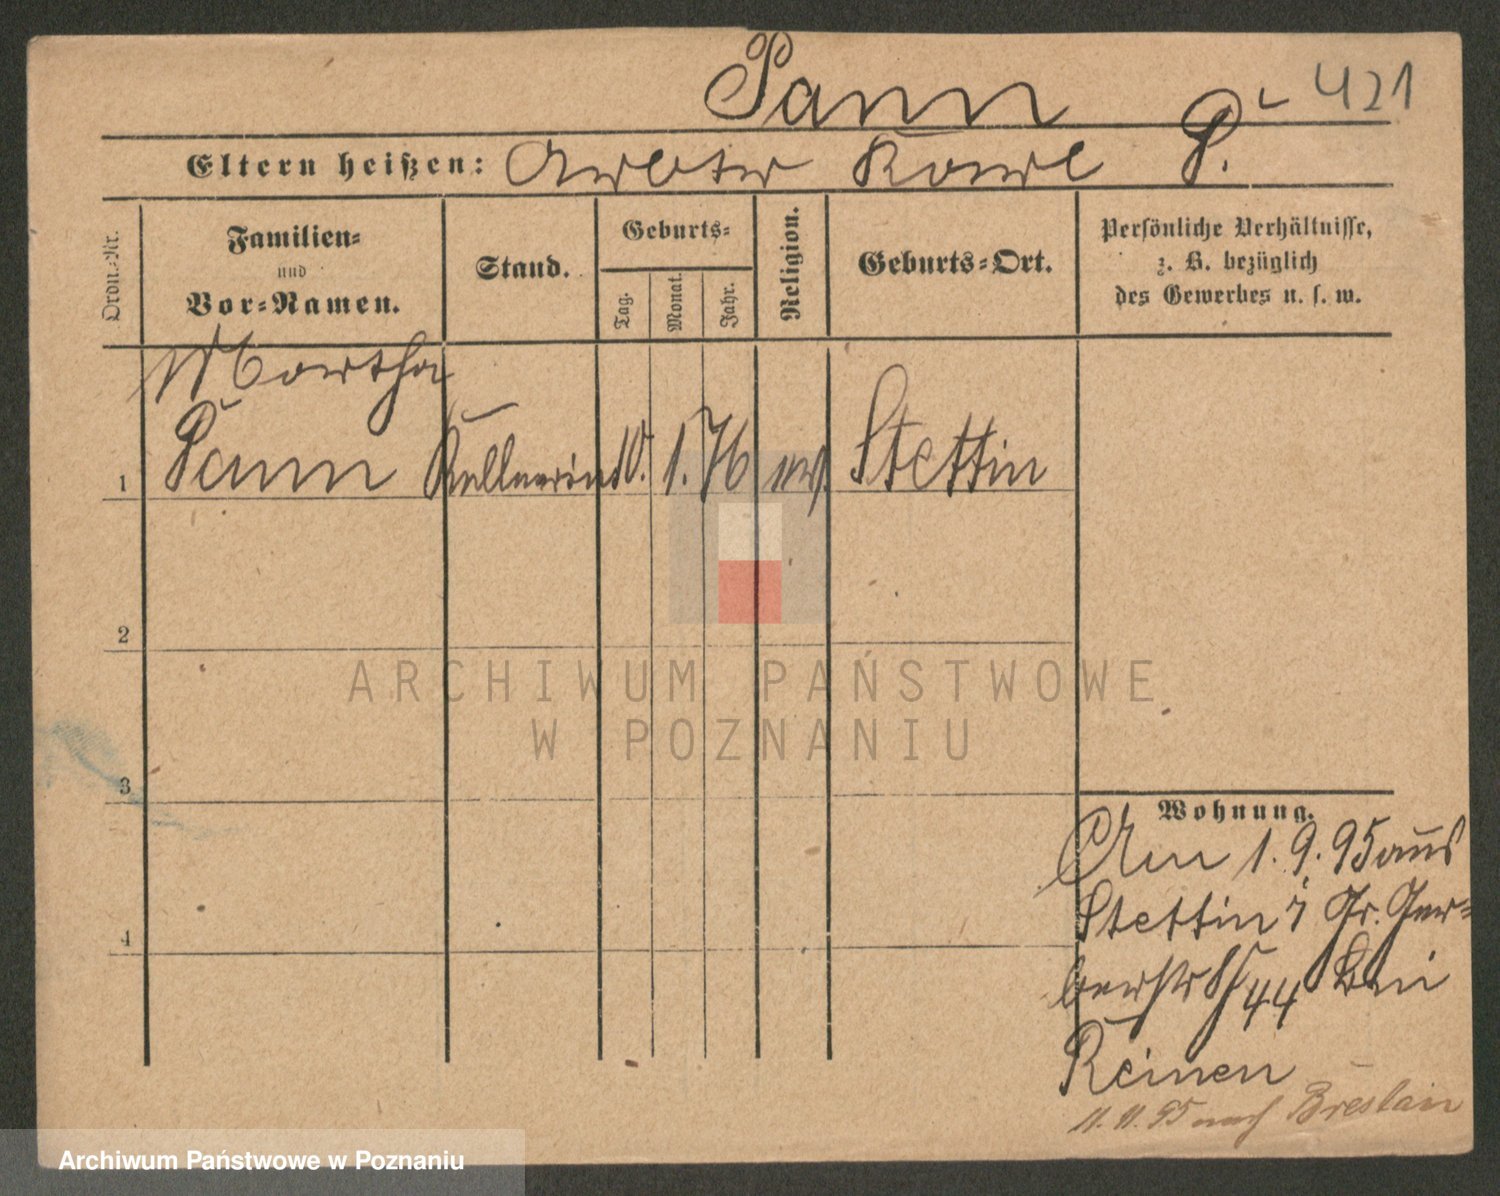 Pann 421
Eltern heißen: Arbtr Karl P.
Ordn.-Nr.
Familien-
und
Vor-Namen.
Stand.
Geburts-
Tag.
Monat.
Jahr.
Religion.
Geburts-Ort.
Persönliche Verhältnisse,
z. B. bezüglich
des Gewerbes u. s. w.
Martha
1 Pann Kellnerin 10. 1. 76 ev. Stettin
2
3
4
Wohnung.
Am 1.9.95 aus
Stettin Gr. Ger-
berstr 44 bei
Reinen
11.11.95 nach Breslau
ARCHIWUM PAŃSTWOWE
W POZNANIU
Archiwum Państwowe w Poznaniu